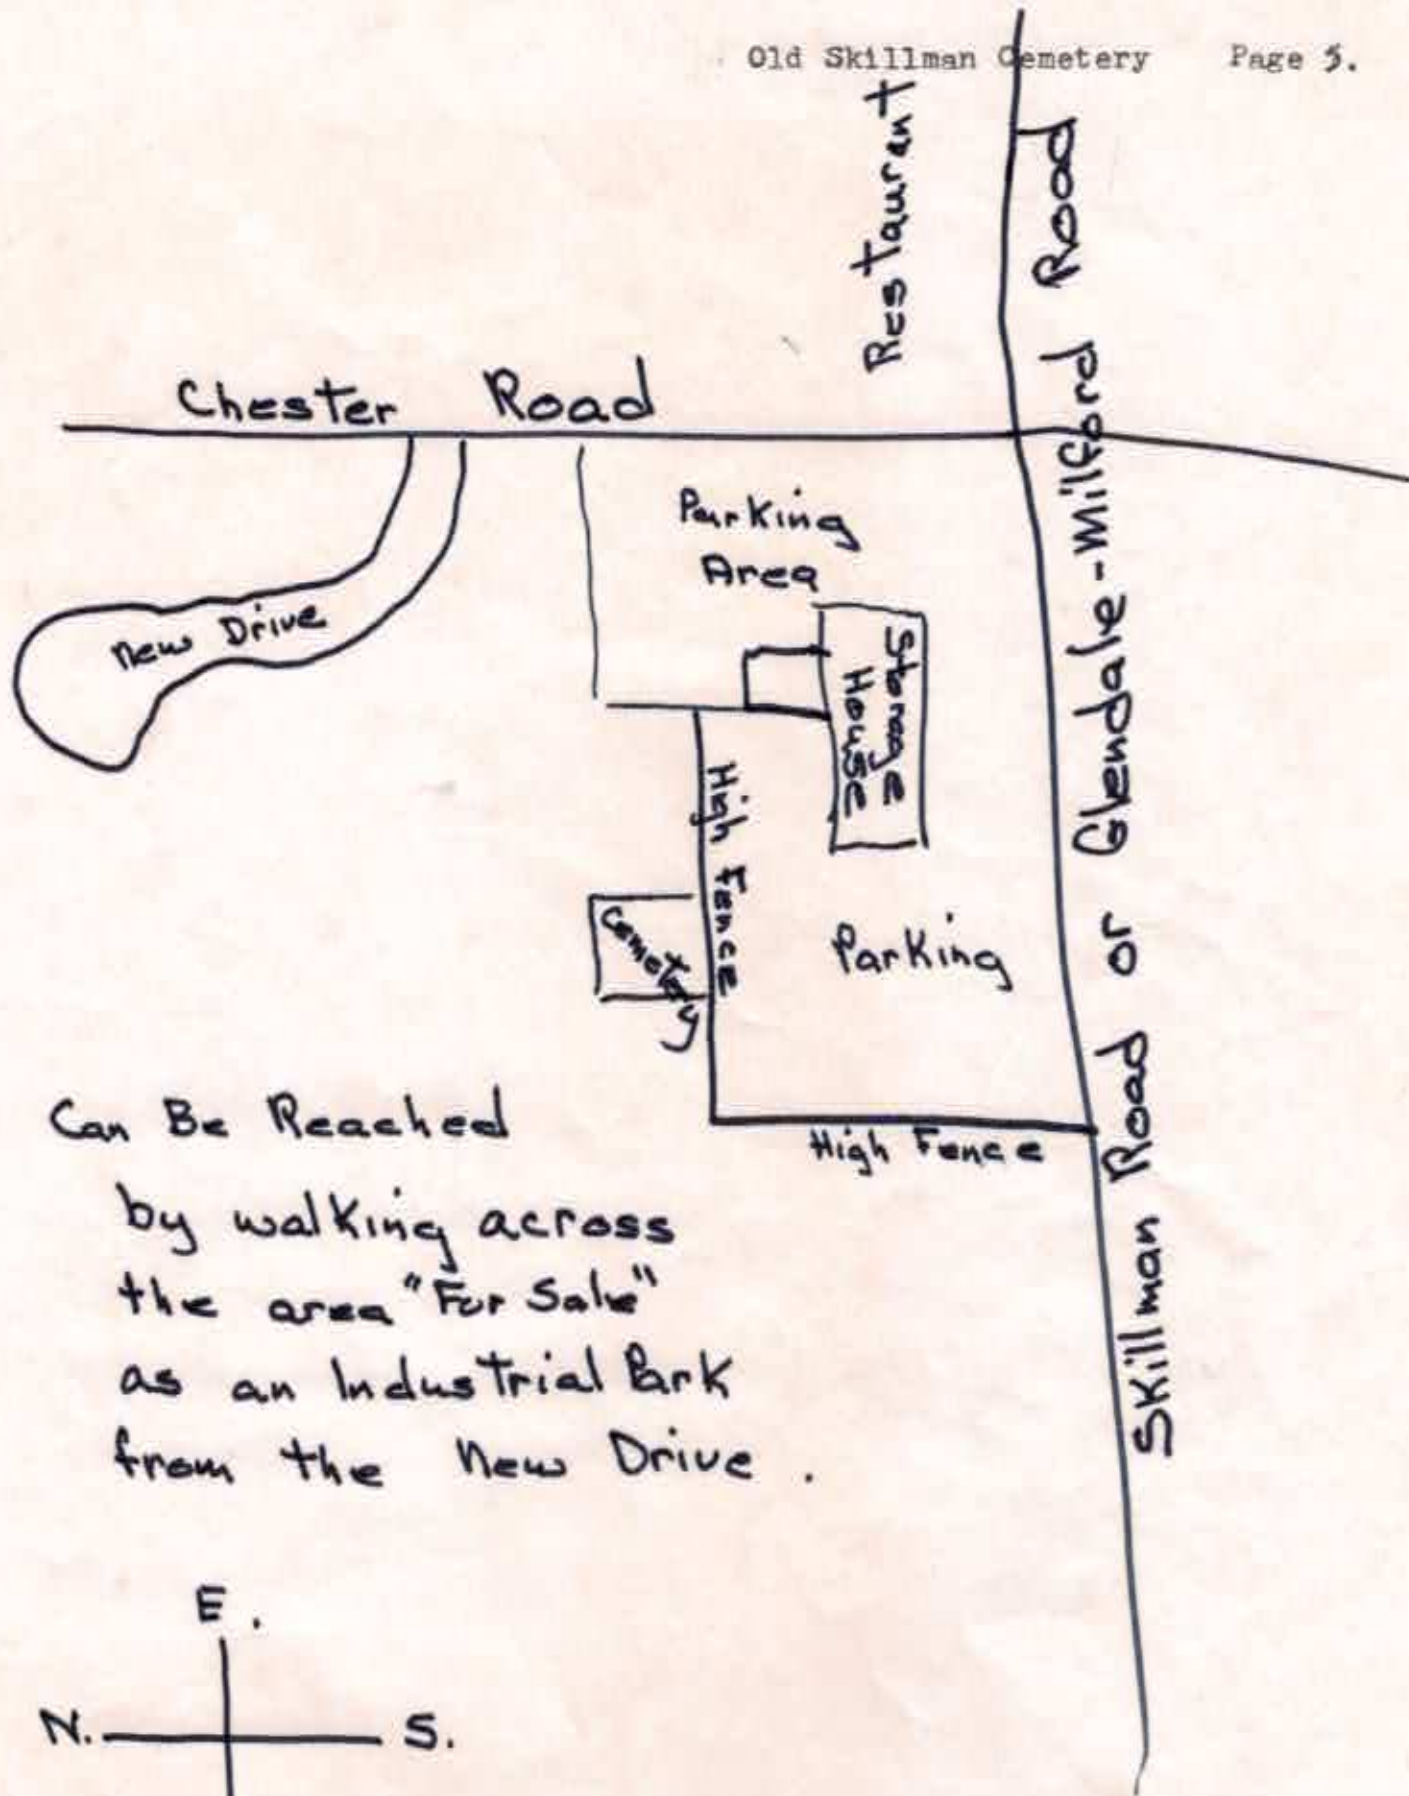 Old Skillman Cemetery Page 5.
Restaurant
Skillman Road or Glendale-Milford Road
Chester Road
Parking
Area
New Drive
Storage
House
High Fence
Cemetery
Parking
High Fence
Can Be Reached
by walking across
the area "For Sale"
as an Industrial Park
from the New Drive.
E.
N. S.